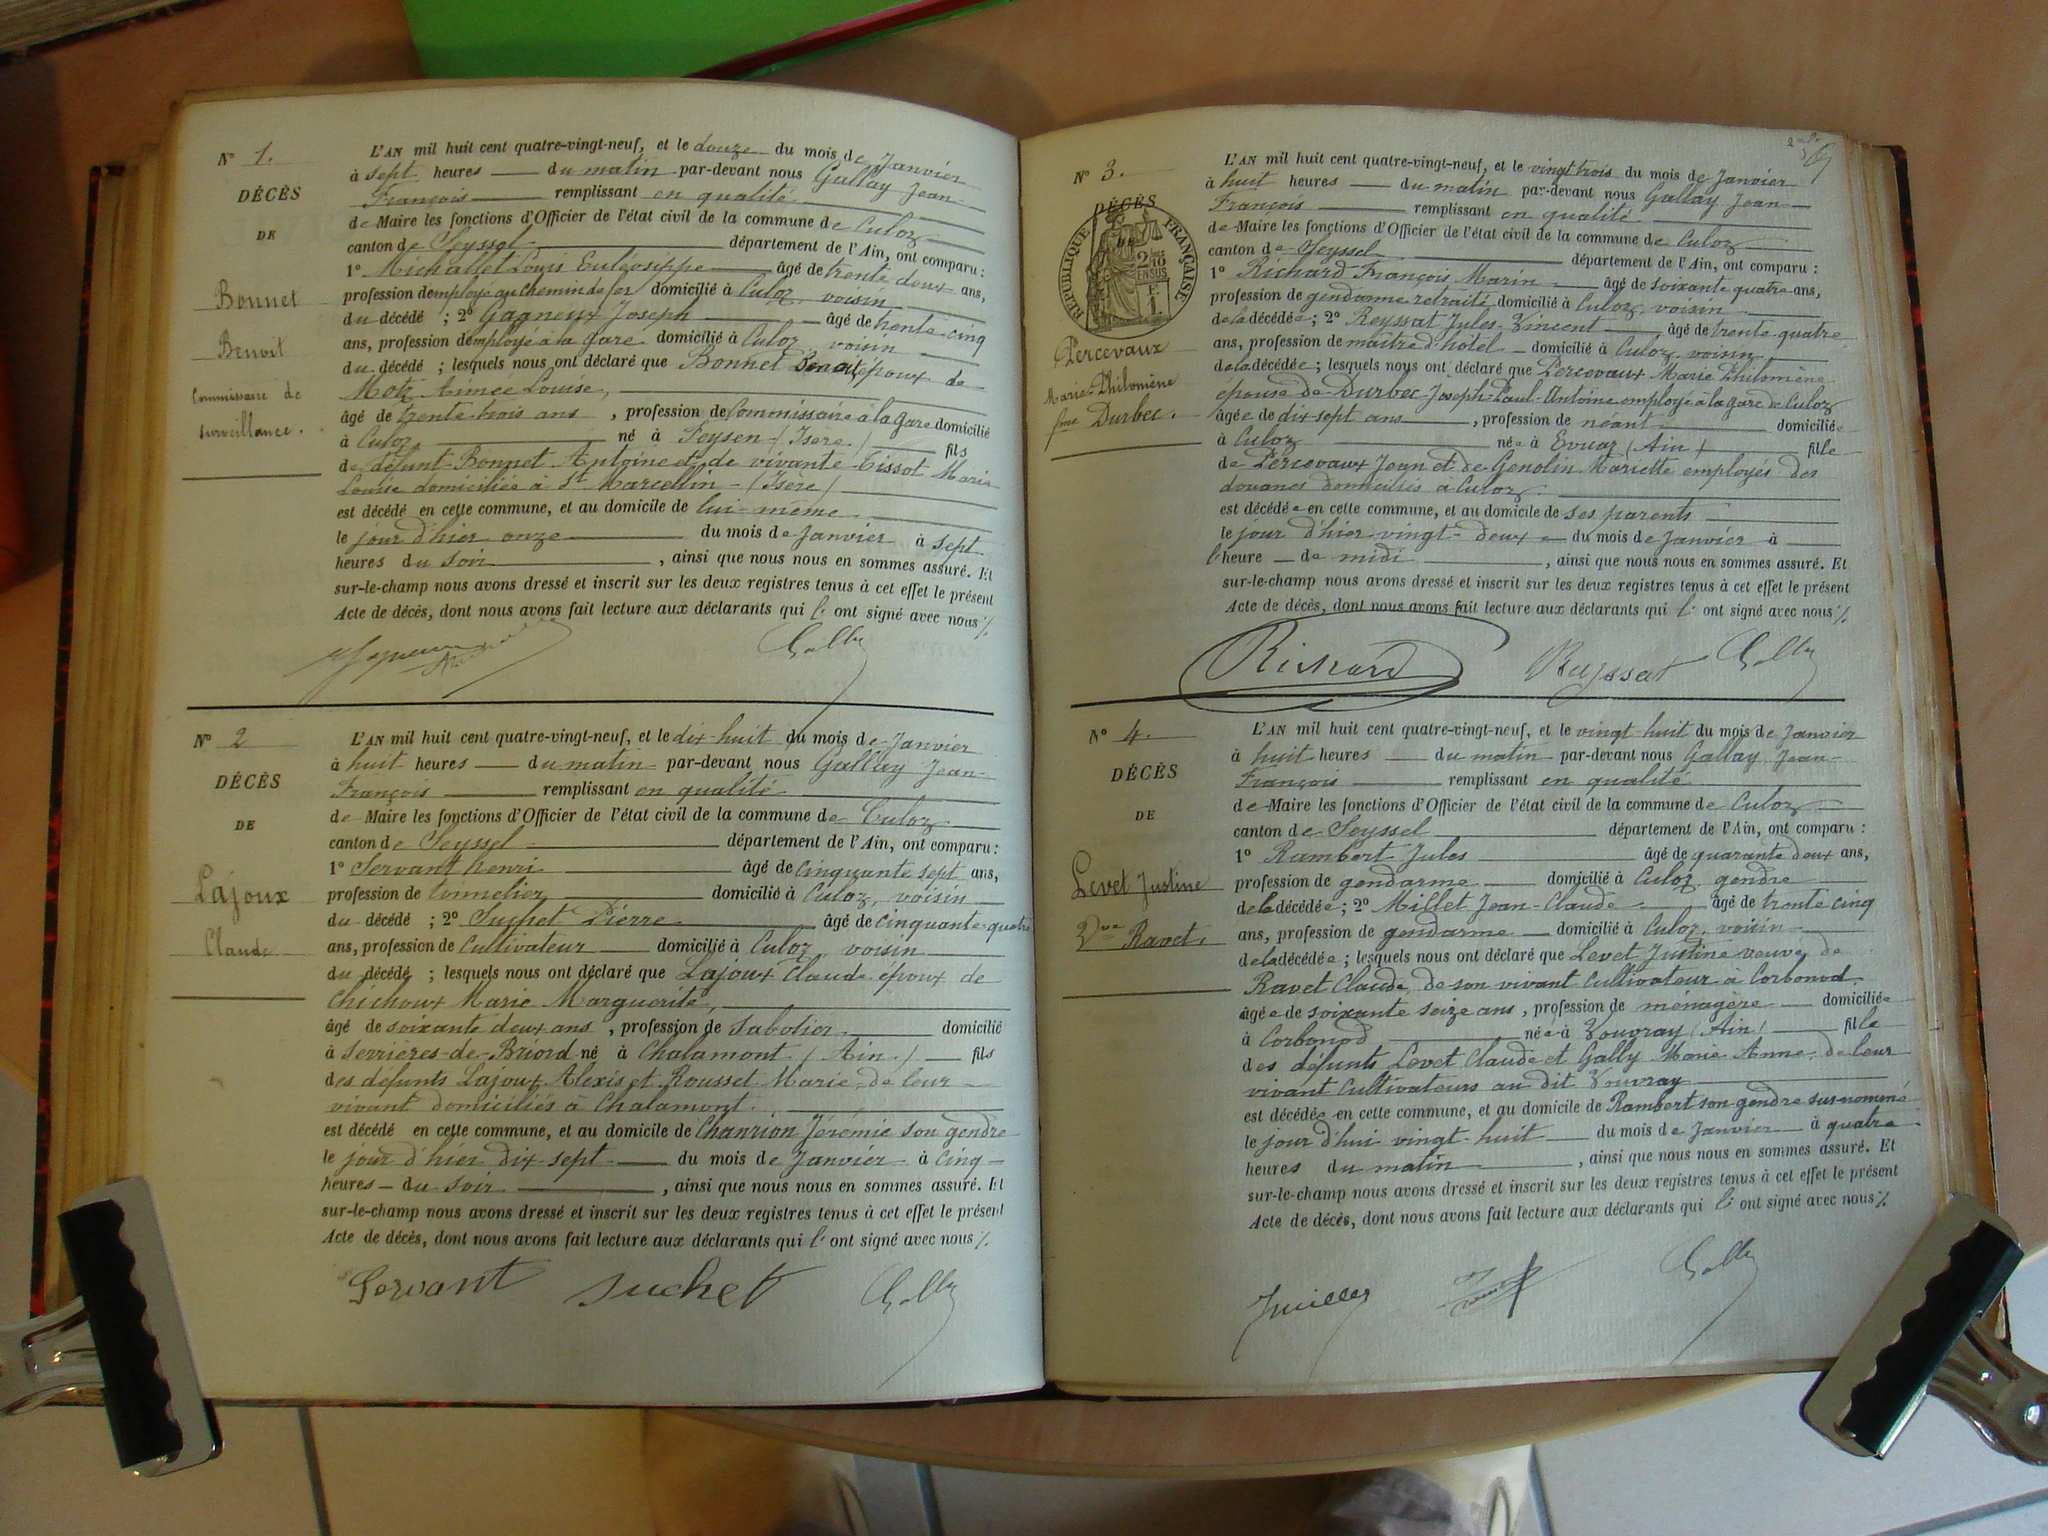 N° 1.
DÉCÈS
DE
Bonnet
Benoit
Commissaire de
surveillance.
L'AN mil huit cent quatre-vingt-neuf, et le douze du mois de Janvier
à sept heures du matin par-devant nous Gallay Jean-
François remplissant en qualité
de Maire les fonctions d'Officier de l'état civil de la commune de Culoz
canton de Seyssel département de l'Ain, ont comparu :
1° Michallet Louis Euléosippe âgé de trente deux ans,
profession d'employé au chemin de fer domicilié à Culoz, voisin
du décédé ; 2° Gagneux Joseph âgé de trente cinq
ans, profession d'employé à la gare domicilié à Culoz, voisin
du décédé ; lesquels nous ont déclaré que Bonnet Benoit époux de
Aimée Louise,
âgé de trente trois ans , profession de Commissaire à la Gare domicilié
à Culoz né à Seysen (Isère) fils
de défunt Bonnet Antoine et de vivante Tissot Marie
Louise domiciliée à St Marcellin (Isère)
est décédé en cette commune, et au domicile de lui-même
le jour d'hier onze du mois de Janvier à sept
heures du soir , ainsi que nous nous en sommes assuré. Et
sur-le-champ nous avons dressé et inscrit sur les deux registres tenus à cet effet le présent
Acte de décès, dont nous avons fait lecture aux déclarants qui l' ont signé avec nous %
N° 2
DÉCÈS
DE
Lajoux
Claude
L'AN mil huit cent quatre-vingt-neuf, et le dix-huit du mois de Janvier
à huit heures du matin par-devant nous Gallay Jean-
François remplissant en qualité
de Maire les fonctions d'Officier de l'état civil de la commune de Culoz
canton de Seyssel département de l'Ain, ont comparu :
1° Servant Henri âgé de cinquante sept ans,
profession de tonnelier domicilié à Culoz, voisin
du décédé ; 2° Suchet Pierre âgé de cinquante-quatre
ans, profession de Cultivateur domicilié à Culoz voisin
du décédé ; lesquels nous ont déclaré que Lajoux Claude époux de
Chichoux Marie Marguerite,
âgé de soixante deux ans , profession de Sabotier domicilié
à Serrières-de-Briord né à Chalamont (Ain) fils
des défunts Lajoux Alexis et Rousset Marie de leur
vivant domiciliés à Chalamont.
est décédé en cette commune, et au domicile de Chanrion Jérémie son gendre
le jour d'hier dix-sept du mois de Janvier à cinq
heures du soir , ainsi que nous nous en sommes assuré. Et
sur-le-champ nous avons dressé et inscrit sur les deux registres tenus à cet effet le présent
Acte de décès, dont nous avons fait lecture aux déclarants qui l' ont signé avec nous %
Servant Suchet Gallay
N° 3.
DÉCÈS
RÉPUBLIQUE FRANÇAISE
Percevaux
Marie-Philomène
fme Durbec.
L'AN mil huit cent quatre-vingt-neuf, et le vingt trois du mois de Janvier
à huit heures du matin par-devant nous Gallay Jean-
François remplissant en qualité
de Maire les fonctions d'Officier de l'état civil de la commune de Culoz
canton de Seyssel département de l'Ain, ont comparu :
1° Richard François Marin âgé de soixante quatre ans,
profession de gendarme retraité domicilié à Culoz, voisin
de la décédée ; 2° Reyssat Jules-Vincent âgé de trente quatre
ans, profession de maître d'hôtel domicilié à Culoz, voisin
de la décédée ; lesquels nous ont déclaré que Percevaux Marie Philomène
épouse de Durbec Joseph-Paul-Antoine employé à la gare de Culoz
âgée de dix sept ans , profession de néant domiciliée
à Culoz née à Evuaz (Ain) fille
de Percevaux Jean et de Genolin Mariette employés des
douanes domiciliés à Culoz.
est décédée en cette commune, et au domicile de ses parents
le jour d'hier vingt-deux du mois de Janvier à
l'heure de midi , ainsi que nous nous en sommes assuré. Et
sur-le-champ nous avons dressé et inscrit sur les deux registres tenus à cet effet le présent
Acte de décès, dont nous avons fait lecture aux déclarants qui l' ont signé avec nous %
Richard Reyssat Gallay
N° 4.
DÉCÈS
DE
Levet Justine
Vve Ravet.
L'AN mil huit cent quatre-vingt-neuf, et le vingt huit du mois de Janvier
à huit heures du matin par-devant nous Gallay Jean-
François remplissant en qualité
de Maire les fonctions d'Officier de l'état civil de la commune de Culoz
canton de Seyssel département de l'Ain, ont comparu :
1° Rambert Jules âgé de quarante deux ans,
profession de gendarme domicilié à Culoz, gendre
de la décédée ; 2° Millet Jean-Claude âgé de trente cinq
ans, profession de gendarme domicilié à Culoz, voisin
de la décédée ; lesquels nous ont déclaré que Levet Justine veuve de
Ravet Claude, de son vivant Cultivateur à Corbonod
âgée de soixante seize ans , profession de ménagère domiciliée
à Corbonod née à Vouvray (Ain) fille
des défunts Levet Claude et Gally Marie Anne, de leur
vivant Cultivateurs au dit Vouvray
est décédée en cette commune, et au domicile de Rambert son gendre sus-nommé
le jour d'hui vingt-huit du mois de Janvier à quatre
heures du matin , ainsi que nous nous en sommes assuré. Et
sur-le-champ nous avons dressé et inscrit sur les deux registres tenus à cet effet le présent
Acte de décès, dont nous avons fait lecture aux déclarants qui l' ont signé avec nous %